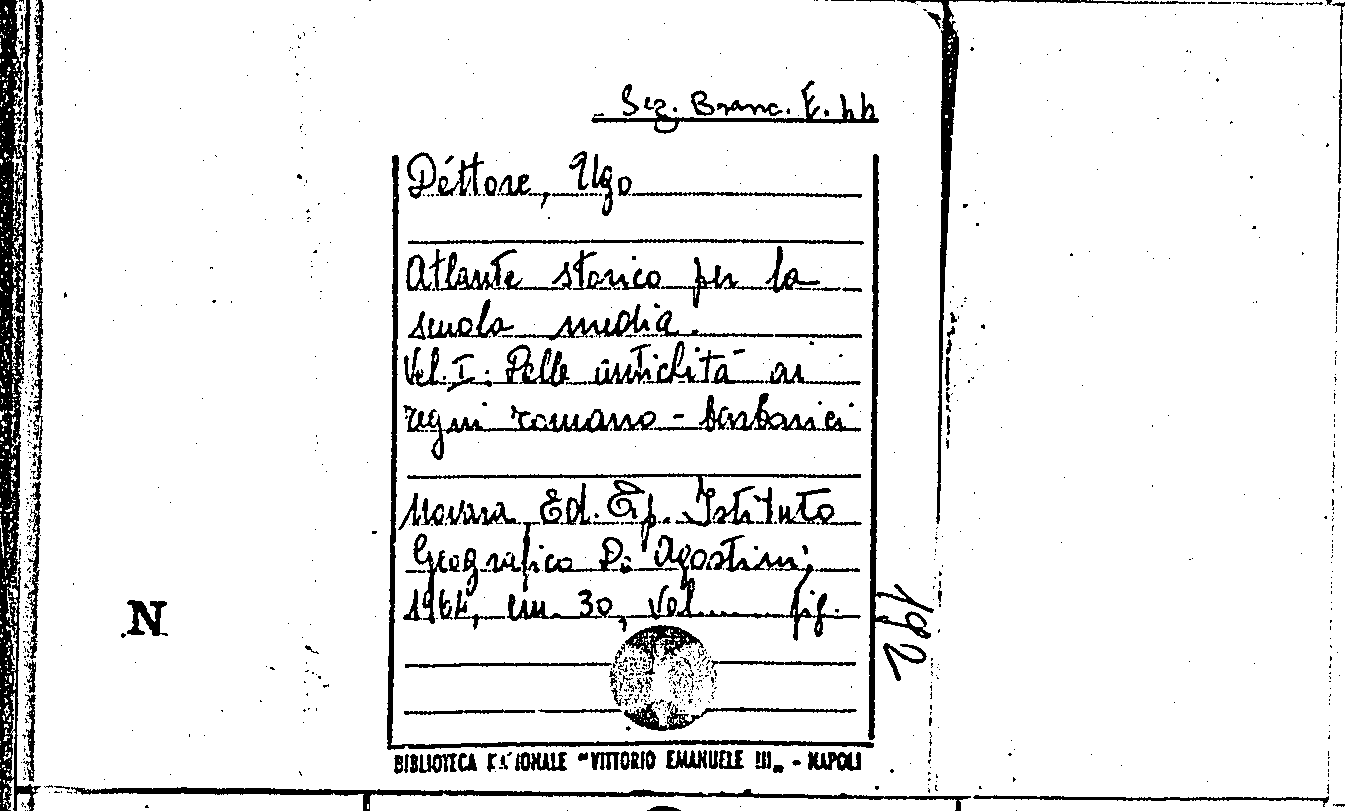 Sez. Branc. E. bb
Déttore, Ugo
Atlante storico per la
scuola media.
Vol. I: Dalle antichità ai
regni romano-barbarici
Novara Ed. Tip. Istituto
Geografico De Agostini,
1964, cm. 30, vol. .... fig.
192
N
BIBLIOTECA NAZIONALE "VITTORIO EMANUELE III„ - NAPOLI